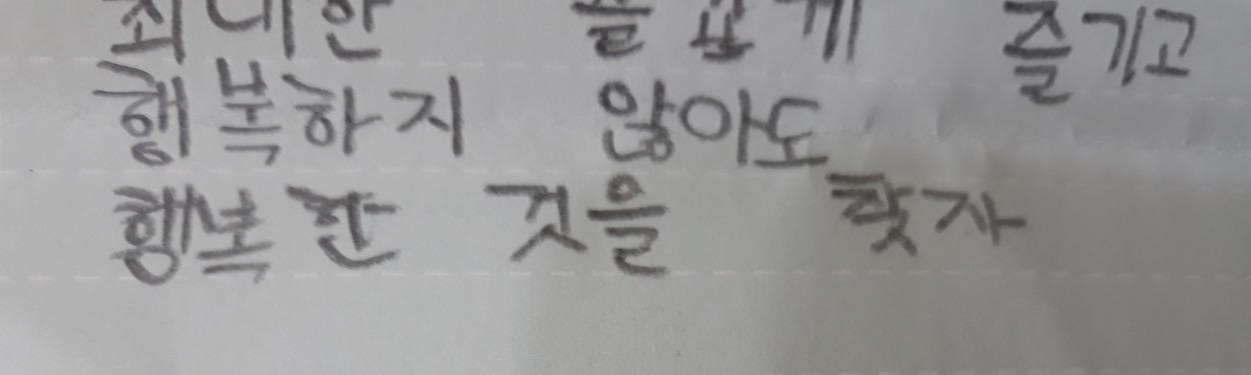 최대한 슬프게 즐기고
행복하지 않아도
행복한 것을 찾자